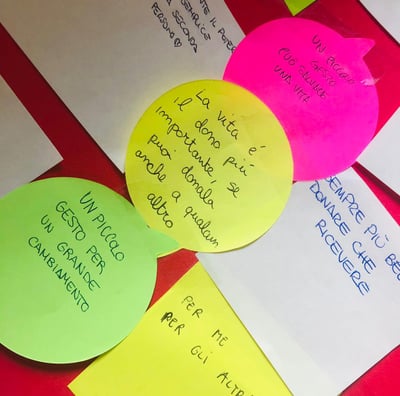 IL POTERE
SEMPLICE
SECONDA
PERSONA
UN PICCOLO
GESTO
PUÒ SALVARE
UNA VITA
La vita é
il dono più
importante, se
puoi donala
anche a qualcun
altro
UN PICCOLO
GESTO PER
UN GRANDE
CAMBIAMENTO
SEMPRE PIÙ BEL
DONARE CHE
RICEVERE
PER ME
PER GLI ALTR